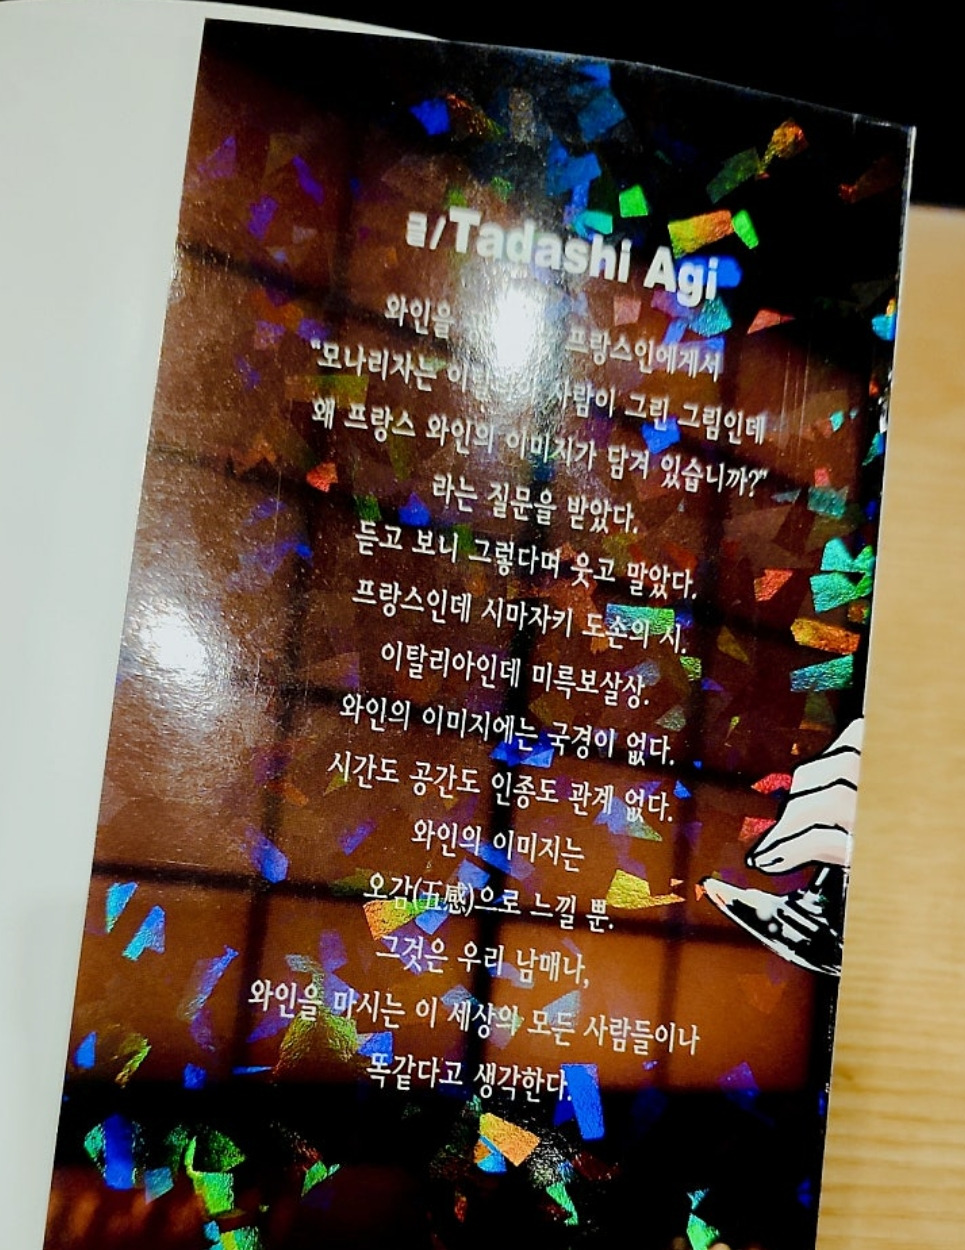 글/Tadashi Agi
와인을 프랑스인에게서
"모나리자는 사람이 그린 그림인데
왜 프랑스 와인의 이미지가 담겨 있습니까?"
라는 질문을 받았다.
듣고 보니 그렇다며 웃고 말았다.
프랑스인데 시마자키 도손의 시.
이탈리아인데 미륵보살상.
와인의 이미지에는 국경이 없다.
시간도 공간도 인종도 관계 없다.
와인의 이미지는
오감(五感)으로 느낄 뿐.
그것은 우리 남매나,
와인을 마시는 이 세상의 모든 사람들이나
똑같다고 생각한다.